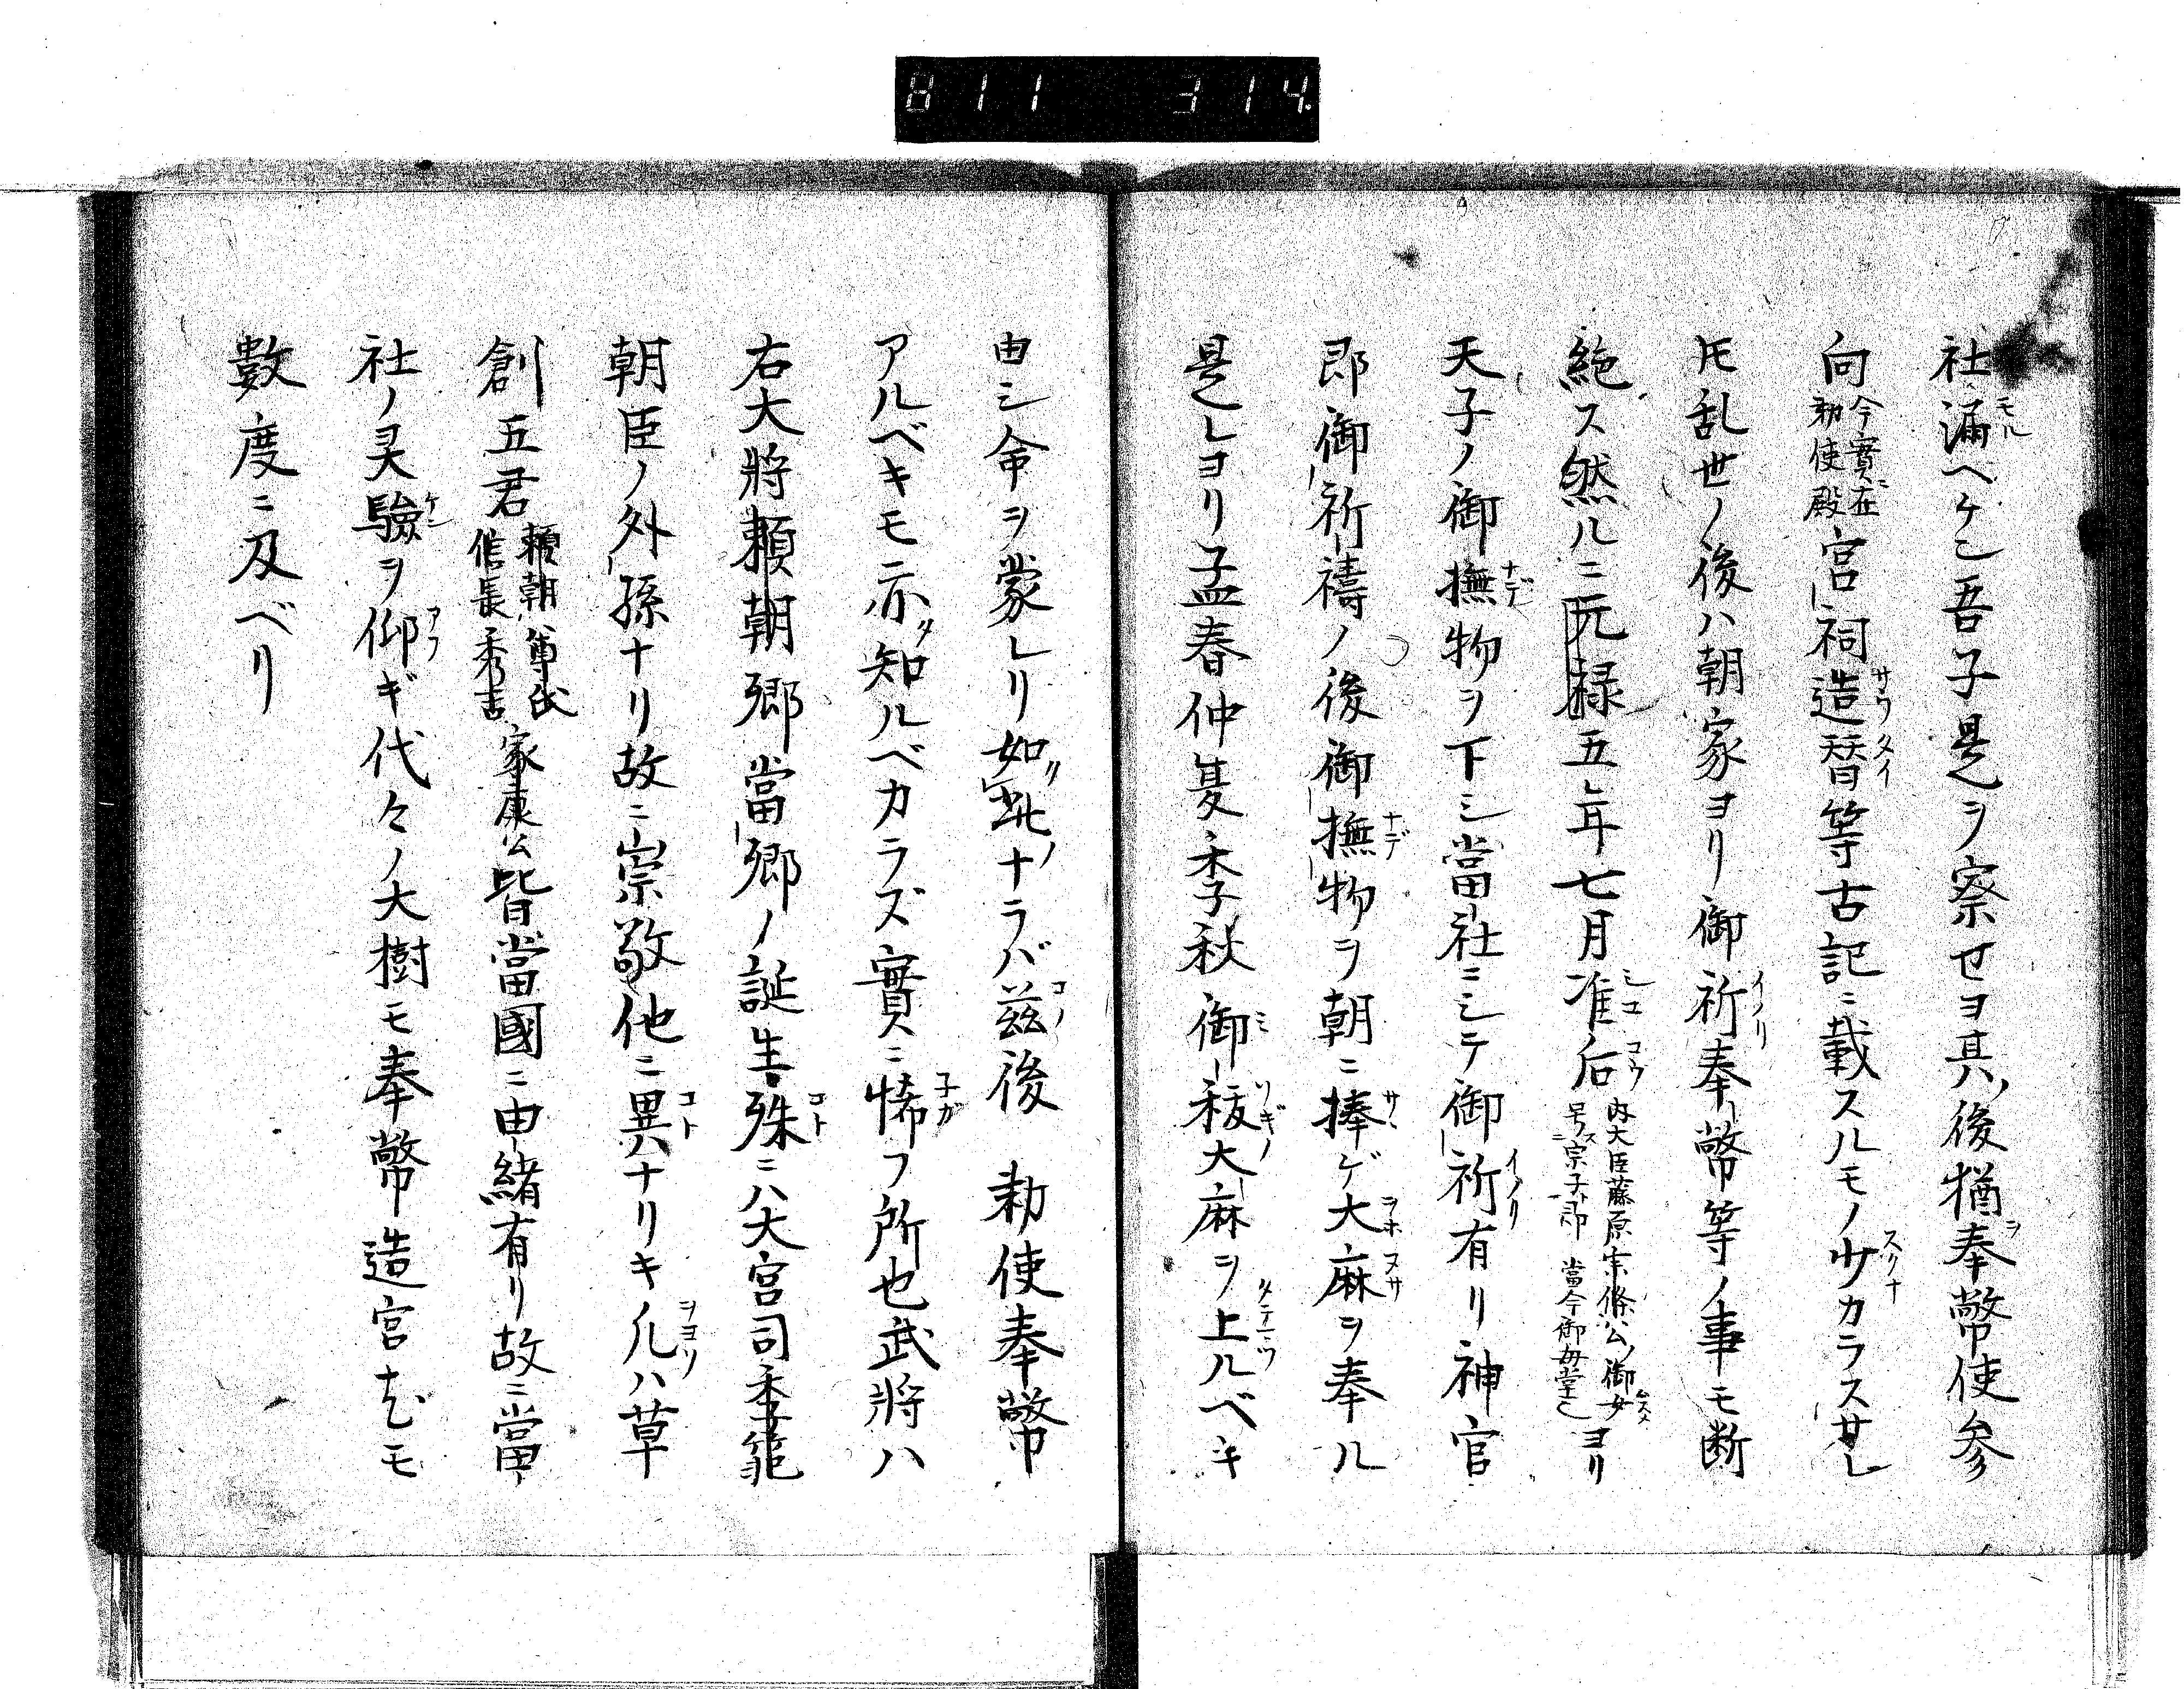 811 314.
社漏ベケン吾子是ヲ察セヨ其ノ後猶奉幣使参
向今實ニ在勅使殿宮祠造替等古記ニ載スルモノ少カラス女しかレ
𪜈乱世ノ後ハ朝家ヨリ御祈奉幣等ノ事モ断
絶ス然ルニ元禄五年七月准后内大臣藤原宗條公ノ御女号ス宗子ト即當今御母堂也ヨリ
天子ノ御撫物ヲ下シ當社ニシテ御祈有リ神官
即御祈禱ノ後御撫物ヲ朝ニ捧ゲ大麻ヲ奉ル
是レヨリ孟春仲夏季秋御祓大麻ヲ上ルベキ
由シ命ヲ蒙レリ如此ナラバ茲後勅使奉幣
アルベキモ亦知ルベカラズ實ニ悕フ所也武將ハ
右大將頼朝郷當郷ノ誕生殊ニハ大宮司季範
朝臣ノ外孫ナリ故ニ崇敬他ニ異ナリキ凡ハ草
創五君頼朝尊氏信長秀吉家康公皆當國ニ由緒有リ故ニ當
社ノ灵驗ヲ仰ギ代々ノ大樹モ奉幣造宮尤モ
數度ニ及ベリ